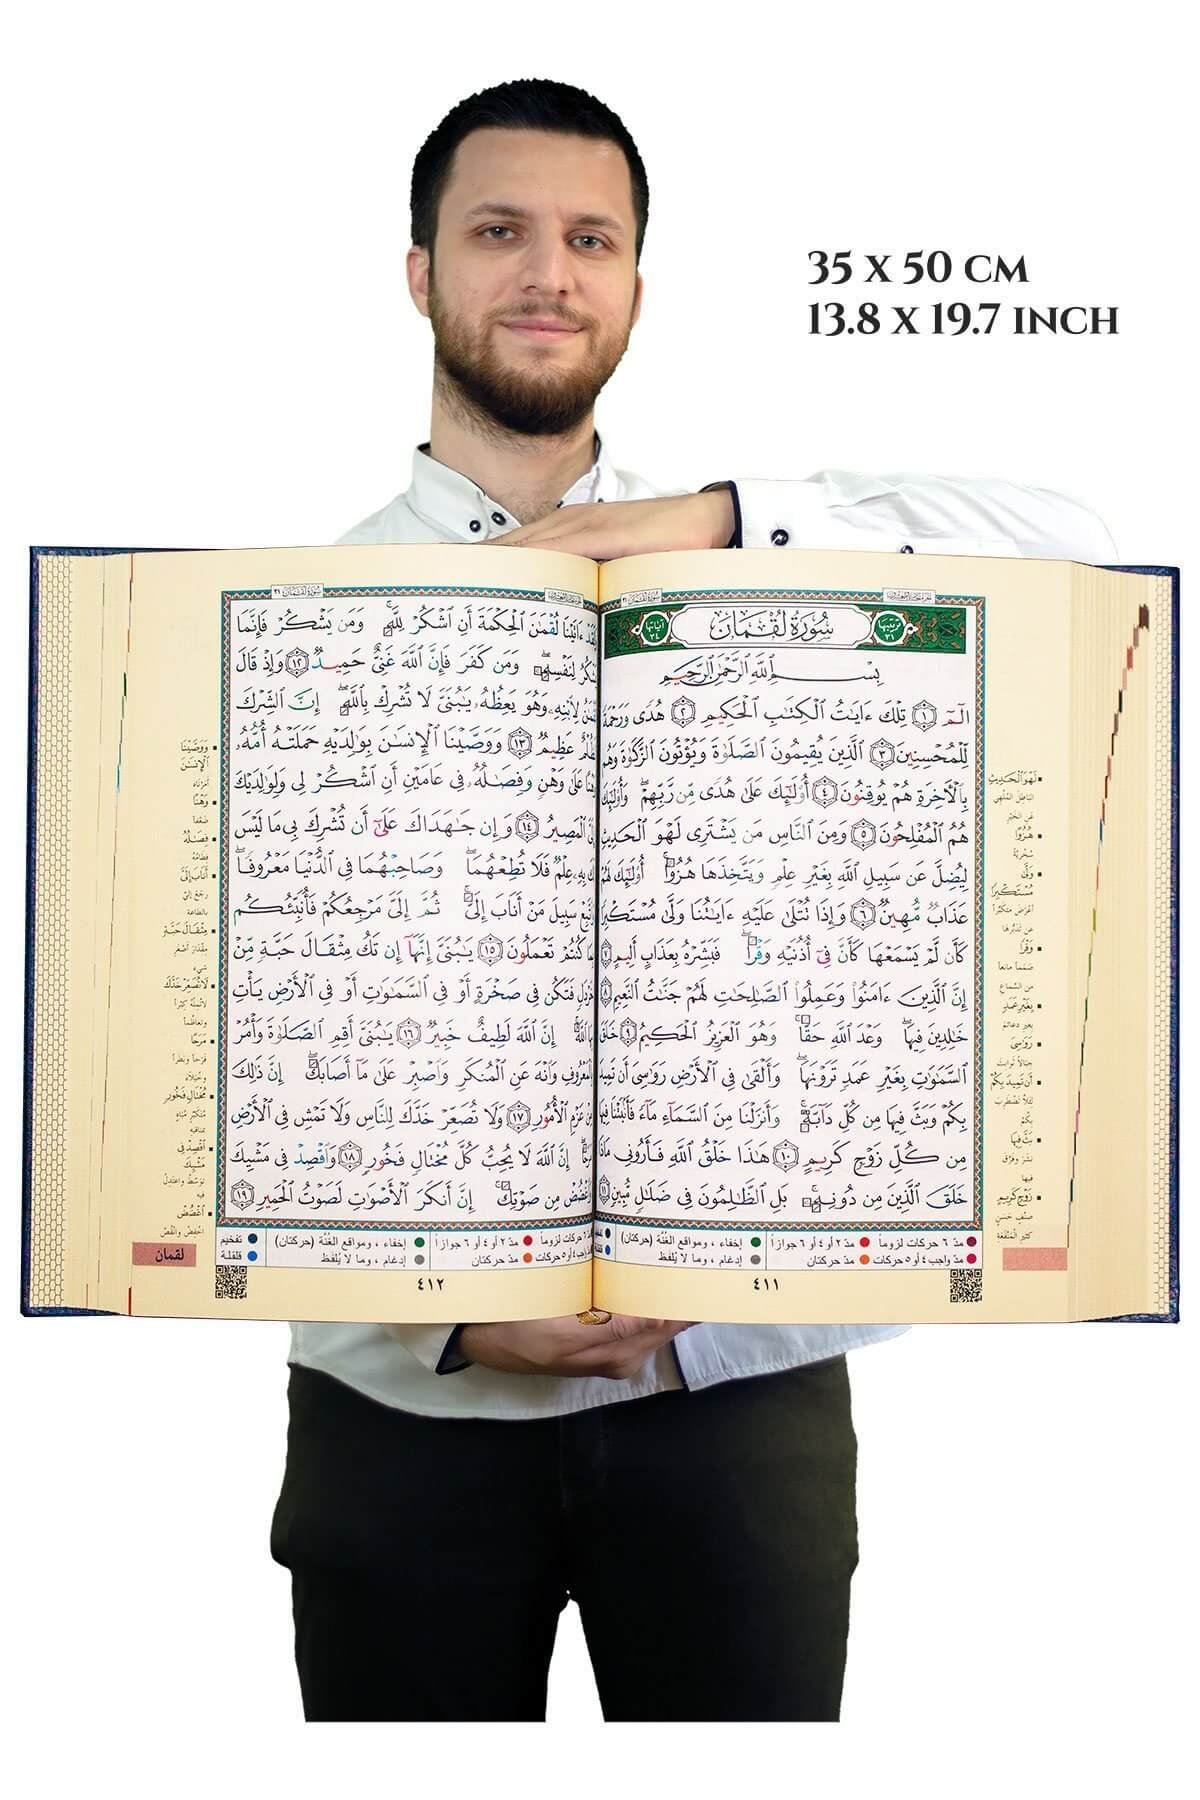 35 x 50 cm
13.8 x 19.7 inch
سُورَةُ لُقْمَانَ
ترتيبها ٣١
آياتها ٣٤
بِسْمِ ٱللَّهِ ٱلرَّحْمَٰنِ ٱلرَّحِيمِ
الٓمٓ ۝١ تِلْكَ ءَايَٰتُ ٱلْكِتَٰبِ ٱلْحَكِيمِ ۝٢ هُدًى وَرَحْمَةً
لِّلْمُحْسِنِينَ ۝٣ ٱلَّذِينَ يُقِيمُونَ ٱلصَّلَوٰةَ وَيُؤْتُونَ ٱلزَّكَوٰةَ وَهُم
بِٱلْءَاخِرَةِ هُمْ يُوقِنُونَ ۝٤ أُو۟لَٰٓئِكَ عَلَىٰ هُدًى مِّن رَّبِّهِمْ ۖ وَأُو۟لَٰٓئِكَ
هُمُ ٱلْمُفْلِحُونَ ۝٥ وَمِنَ ٱلنَّاسِ مَن يَشْتَرِى لَهْوَ ٱلْحَدِيثِ
لِيُضِلَّ عَن سَبِيلِ ٱللَّهِ بِغَيْرِ عِلْمٍ وَيَتَّخِذَهَا هُزُوًا ۚ أُو۟لَٰٓئِكَ لَهُمْ
عَذَابٌ مُّهِينٌ ۝٦ وَإِذَا تُتْلَىٰ عَلَيْهِ ءَايَٰتُنَا وَلَّىٰ مُسْتَكْبِرًا
كَأَن لَّمْ يَسْمَعْهَا كَأَنَّ فِىٓ أُذُنَيْهِ وَقْرًا ۖ فَبَشِّرْهُ بِعَذَابٍ أَلِيمٍ ۝٧
إِنَّ ٱلَّذِينَ ءَامَنُوا۟ وَعَمِلُوا۟ ٱلصَّٰلِحَٰتِ لَهُمْ جَنَّٰتُ ٱلنَّعِيمِ ۝٨
خَٰلِدِينَ فِيهَا ۖ وَعْدَ ٱللَّهِ حَقًّا ۚ وَهُوَ ٱلْعَزِيزُ ٱلْحَكِيمُ ۝٩ خَلَقَ
ٱلسَّمَٰوَٰتِ بِغَيْرِ عَمَدٍ تَرَوْنَهَا ۖ وَأَلْقَىٰ فِى ٱلْأَرْضِ رَوَٰسِىَ أَن تَمِيدَ
بِكُمْ وَبَثَّ فِيهَا مِن كُلِّ دَآبَّةٍ ۚ وَأَنزَلْنَا مِنَ ٱلسَّمَآءِ مَآءً فَأَنۢبَتْنَا فِيهَا
مِن كُلِّ زَوْجٍ كَرِيمٍ ۝١٠ هَٰذَا خَلْقُ ٱللَّهِ فَأَرُونِى مَاذَا
خَلَقَ ٱلَّذِينَ مِن دُونِهِۦ ۚ بَلِ ٱلظَّٰلِمُونَ فِى ضَلَٰلٍ مُّبِينٍ ۝١١
مدّ ٦ حركات لزوماً مدّ ٢ أو ٤ أو ٦ جوازاً إخفاء ، ومواقع الغُنَّة (حركتان)
مدّ واجب ٤ أو ٥ حركات مدّ حركتان إدغام ، وما لا يُلفظ
٤١١
سُورَةُ لُقْمَانَ ٣١
ءَاتَيْنَا لُقْمَٰنَ ٱلْحِكْمَةَ أَنِ ٱشْكُرْ لِلَّهِ ۚ وَمَن يَشْكُرْ فَإِنَّمَا
يَشْكُرُ لِنَفْسِهِۦ ۖ وَمَن كَفَرَ فَإِنَّ ٱللَّهَ غَنِىٌّ حَمِيدٌ ۝١٢ وَإِذْ قَالَ
لِٱبْنِهِۦ وَهُوَ يَعِظُهُۥ يَٰبُنَىَّ لَا تُشْرِكْ بِٱللَّهِ ۖ إِنَّ ٱلشِّرْكَ
لَظُلْمٌ عَظِيمٌ ۝١٣ وَوَصَّيْنَا ٱلْإِنسَٰنَ بِوَٰلِدَيْهِ حَمَلَتْهُ أُمُّهُۥ
وَهْنًا عَلَىٰ وَهْنٍ وَفِصَٰلُهُۥ فِى عَامَيْنِ أَنِ ٱشْكُرْ لِى وَلِوَٰلِدَيْكَ
إِلَىَّ ٱلْمَصِيرُ ۝١٤ وَإِن جَٰهَدَاكَ عَلَىٰٓ أَن تُشْرِكَ بِى مَا لَيْسَ
لَكَ بِهِۦ عِلْمٌ فَلَا تُطِعْهُمَا ۖ وَصَاحِبْهُمَا فِى ٱلدُّنْيَا مَعْرُوفًا ۖ
وَٱتَّبِعْ سَبِيلَ مَنْ أَنَابَ إِلَىَّ ۚ ثُمَّ إِلَىَّ مَرْجِعُكُمْ فَأُنَبِّئُكُم
بِمَا كُنتُمْ تَعْمَلُونَ ۝١٥ يَٰبُنَىَّ إِنَّهَآ إِن تَكُ مِثْقَالَ حَبَّةٍ مِّنْ
خَرْدَلٍ فَتَكُن فِى صَخْرَةٍ أَوْ فِى ٱلسَّمَٰوَٰتِ أَوْ فِى ٱلْأَرْضِ يَأْتِ
بِهَا ٱللَّهُ ۚ إِنَّ ٱللَّهَ لَطِيفٌ خَبِيرٌ ۝١٦ يَٰبُنَىَّ أَقِمِ ٱلصَّلَوٰةَ وَأْمُرْ
بِٱلْمَعْرُوفِ وَٱنْهَ عَنِ ٱلْمُنكَرِ وَٱصْبِرْ عَلَىٰ مَآ أَصَابَكَ ۖ إِنَّ ذَٰلِكَ
مِنْ عَزْمِ ٱلْأُمُورِ ۝١٧ وَلَا تُصَعِّرْ خَدَّكَ لِلنَّاسِ وَلَا تَمْشِ فِى ٱلْأَرْضِ
مَرَحًا ۖ إِنَّ ٱللَّهَ لَا يُحِبُّ كُلَّ مُخْتَالٍ فَخُورٍ ۝١٨ وَٱقْصِدْ فِى مَشْيِكَ
وَٱغْضُضْ مِن صَوْتِكَ ۚ إِنَّ أَنكَرَ ٱلْأَصْوَٰتِ لَصَوْتُ ٱلْحَمِيرِ ۝١٩
حركات لزوماً مدّ ٢ أو ٤ أو ٦ جوازاً إخفاء ، ومواقع الغُنَّة (حركتان) تفخيم
واجب ٤ أو ٥ حركات مدّ حركتان إدغام ، وما لا يُلفظ قلقلة
لقمان
٤١٢